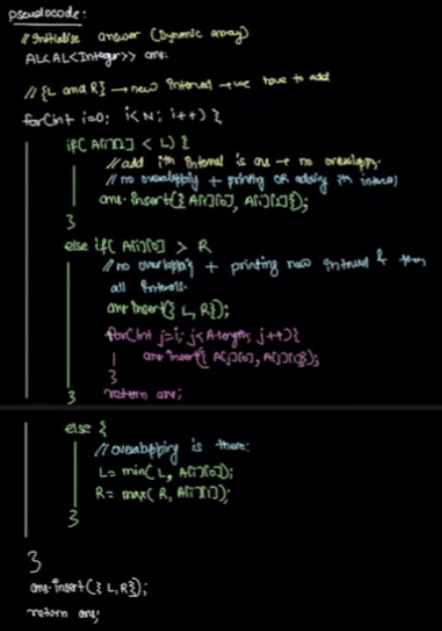 pseudocode:
// Initialise answer (Dynamic array)
AL<AL<Integer>> ans.
// {L and R} → new interval → we have to add
for(int i=0; i<N; i++) {
if( A[i][1] < L) {
// add ith interval is ans → no overlapp.
// no overlapping + printing OR adding ith interval
ans.insert({ A[i][0], A[i][1]});
}
else if( A[i][0] > R
// no overlapp's + printing new interval & then
all intervals.
ans.insert({ L, R});
for(int j=i; j<A.length; j++){
ans.insert({ A[j][0], A[j][1]});
}
return ans;
}
else {
// overlapping is there:
L= min( L, A[i][0]);
R= max( R, A[i][1]);
}
}
ans.insert({ L,R});
return ans;